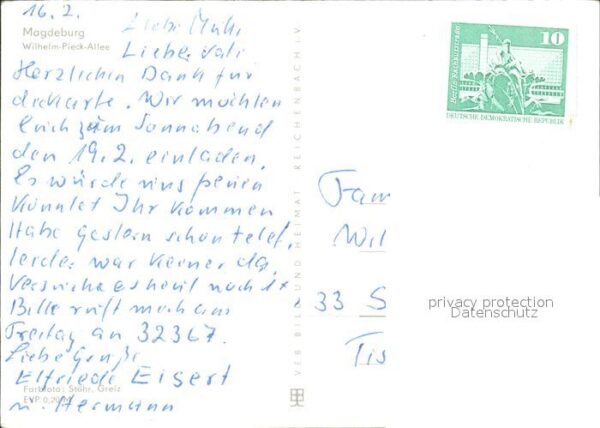 16.2.
Liebe Muki,
Liebe Vati
Magdeburg
Wilhelm-Pieck-Allee
Herzlichen Dank für
die Karte. Wir möchten
Euch zum Sonnabend
den 19.2. einladen.
Es würde uns freuen
könntet Ihr kommen
Habe gestern schon telef.
leider war keiner da.
Versuche es heut noch 1x
Bitte ruft mich am
Freitag an 32367.
Liebe Grüße
Elfriede Eisert
u. Hermann
Farbfoto: Stöhr, Greiz
EVP 0,20 M
VEB BILD UND HEIMAT REICHENBACH I. V.
10
Berlin
DEUTSCHE DEMOKRATISCHE REPUBLIK
Fam
Wil
33 S
Tis
privacy protection
Datenschutz